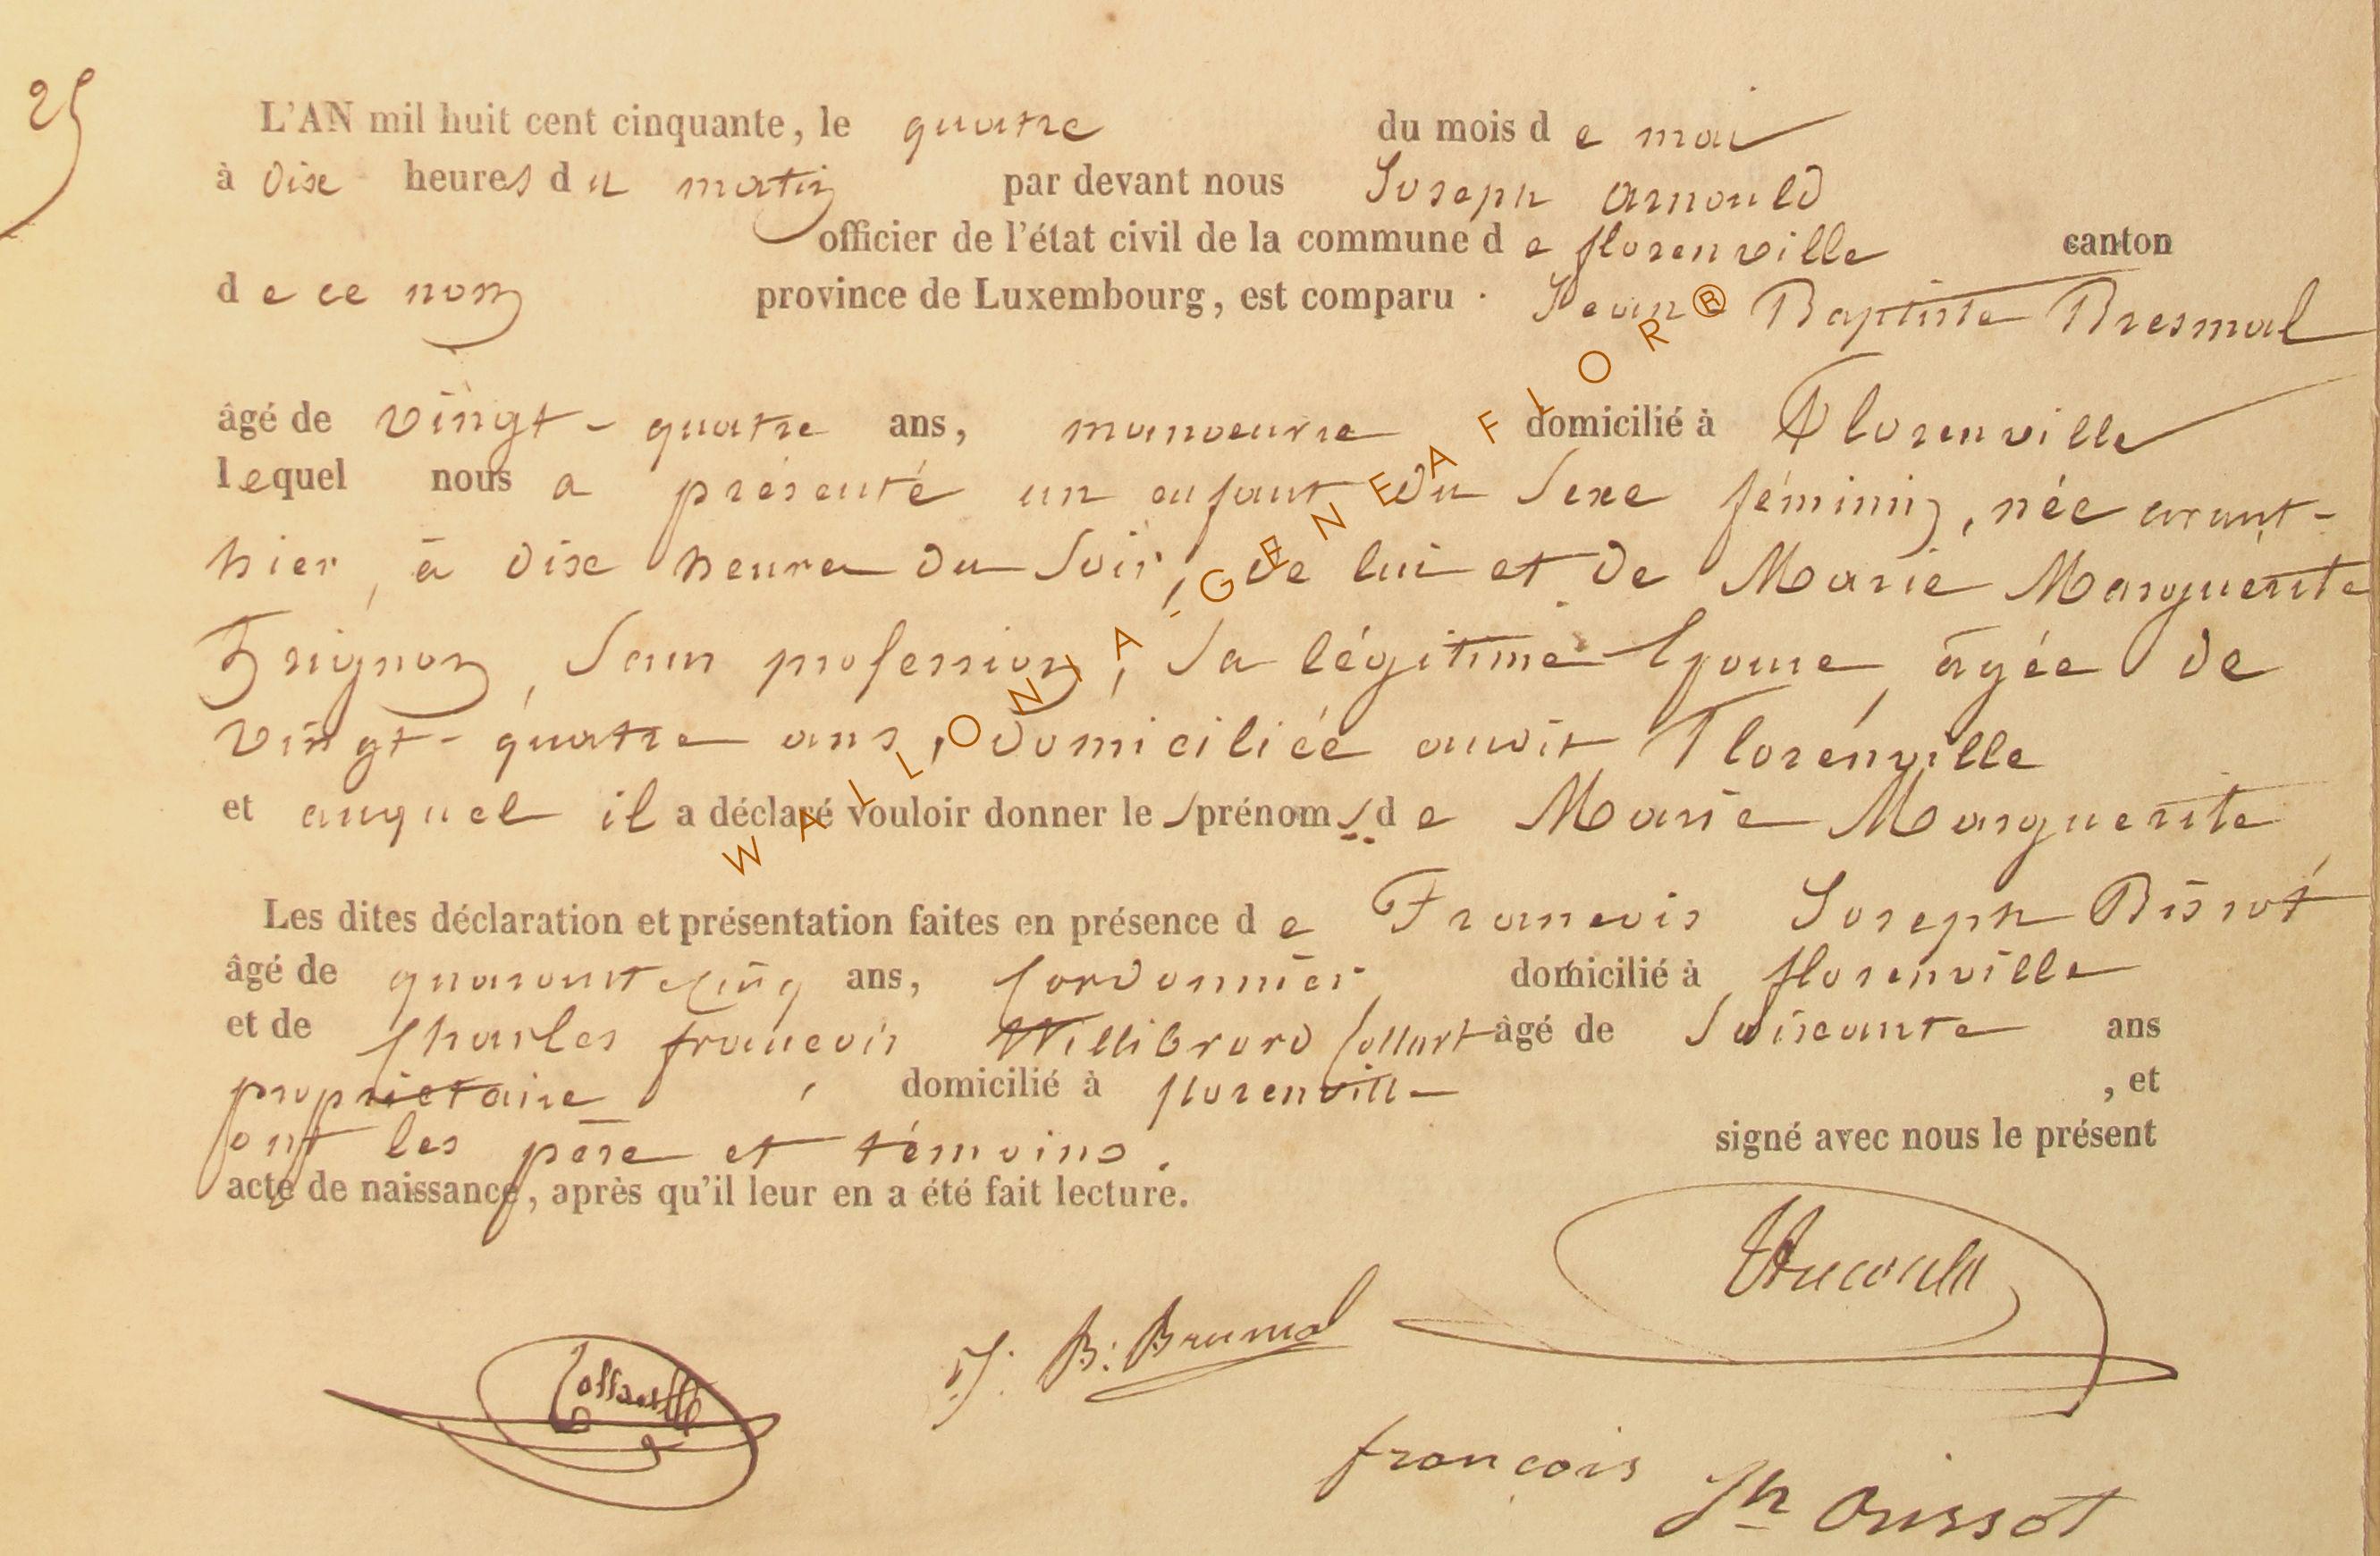 25
L'AN mil huit cent cinquante, le quatre du mois de mai
à dix heures du matin par devant nous Joseph Arnould
officier de l'état civil de la commune de florenville canton
de ce nom province de Luxembourg, est comparu Jean Baptiste Bresmal
âgé de vingt-quatre ans, manoeuvre domicilié à Florenville
lequel nous a présenté un enfant du sexe féminin, née avant-
hier, à dix heures du soir, de lui et de Marie Marguerite
sans profession, sa légitime Epouse, âgée de
vingt-quatre ans, domiciliée audit Florenville
et auquel il a déclaré vouloir donner les prénoms de Marie Marguerite
Les dites déclaration et présentation faites en présence de Francois Joseph
âgé de quarante cinq ans, Cordonnier domicilié à florenville
et de Charles francois Willibrord Collart âgé de Soixante ans
proprietaire, domicilié à florenville, et
ont les père et témoins. signé avec nous le présent
acte de naissance, après qu'il leur en a été fait lecture.
J. B: Bresmal
françois Jh
WALLONIA-GENEAFLOR®